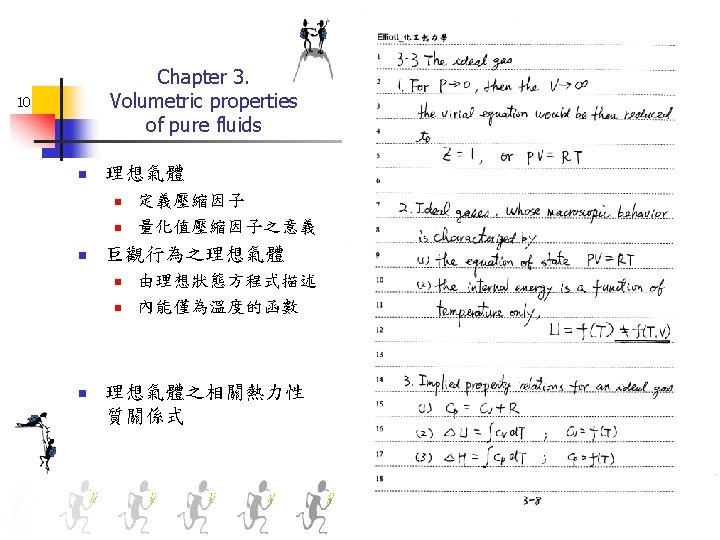 Chapter 3.
10
Volumetric properties
of pure fluids
理想氣體
定義壓縮因子
量化值壓縮因子之意義
巨觀行為之理想氣體
由理想狀態方程式描述
內能僅為溫度的函數
理想氣體之相關熱力性
質關係式
Elliott_化工熱力學
1 3-3 The ideal gas
2 1. For P→0, then the V→∞
3 the virial equation would be then reduced
4 to
5 Z=1, or PV=RT
6
7 2. Ideal gases, whose macroscopic behavior
8 is characterized by
9 (1) the equation of state PV=RT
10 (2) the internal energy is a function of
11 temperature only,
12 U=f(T) ≠f(T,V)
13
14 3. Implied property relations for an ideal gas
15 (1) Cp = Cv + R
16 (2) ΔU = ∫Cv dT ; Cv = f(T)
17 (3) ΔH = ∫Cp dT ; Cp = f(T)
18
3-8